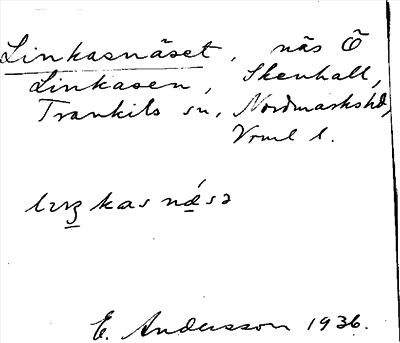 Linkasnäset, näs Ö
Linkasen, Skenhall,
Trankils sn, Nordmarks hd,
Vrml l.
kas
E. Andersson 1936.